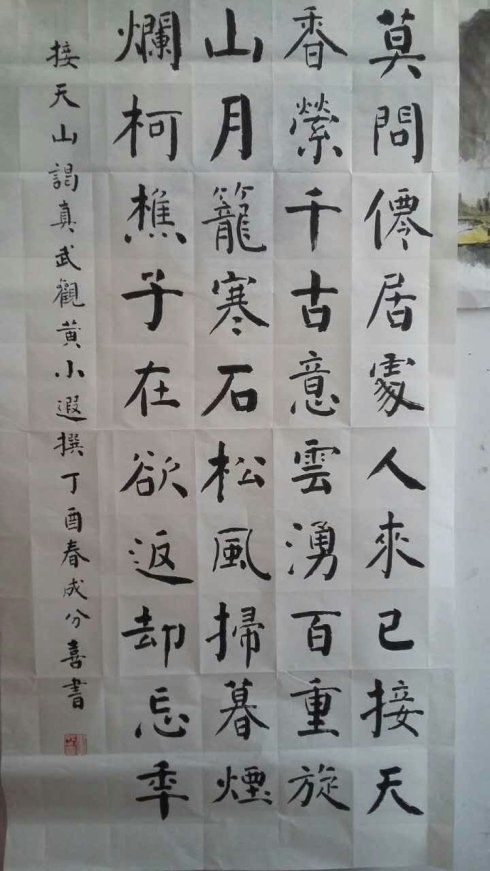 莫問僊居處人來已接天
香縈千古意雲湧百重旋
山月籠寒石松風掃暮煙
爛柯樵子在欲返却忘年
接天山謁真武觀黄小遐撰丁酉春成分喜書